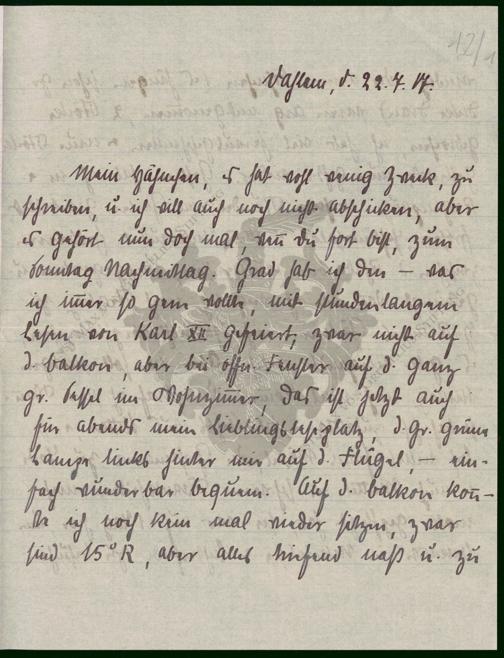 42/1
Dahlem, d. 22.7.17.
Mein Hähnchen, es hat wohl wenig Zweck, zu
schreiben, u. ich will auch noch nicht abschicken, aber
es gehört nun doch mal, wenn du fort bist, zum
Sonntag Nachmittag. Grad hab ich den – was
ich immer so gern wollte, mit stundenlangem
Lesen von Karl XII gefeiert, zwar nicht auf
d. Balkon, aber bei offn. Fenster auf d. ganz
gr. Sessel im Wohnzimmer, das ist jetzt auch
für abends mein Lieblingsleseplatz, d. gr. grüne
Lampe links hinter mir auf d. Flügel, – ein-
fach wunderbar bequem. Auf d. Balkon konn-
te ich noch kein mal wieder sitzen, zwar
sind 15° R, aber alles triefend naß u. zu